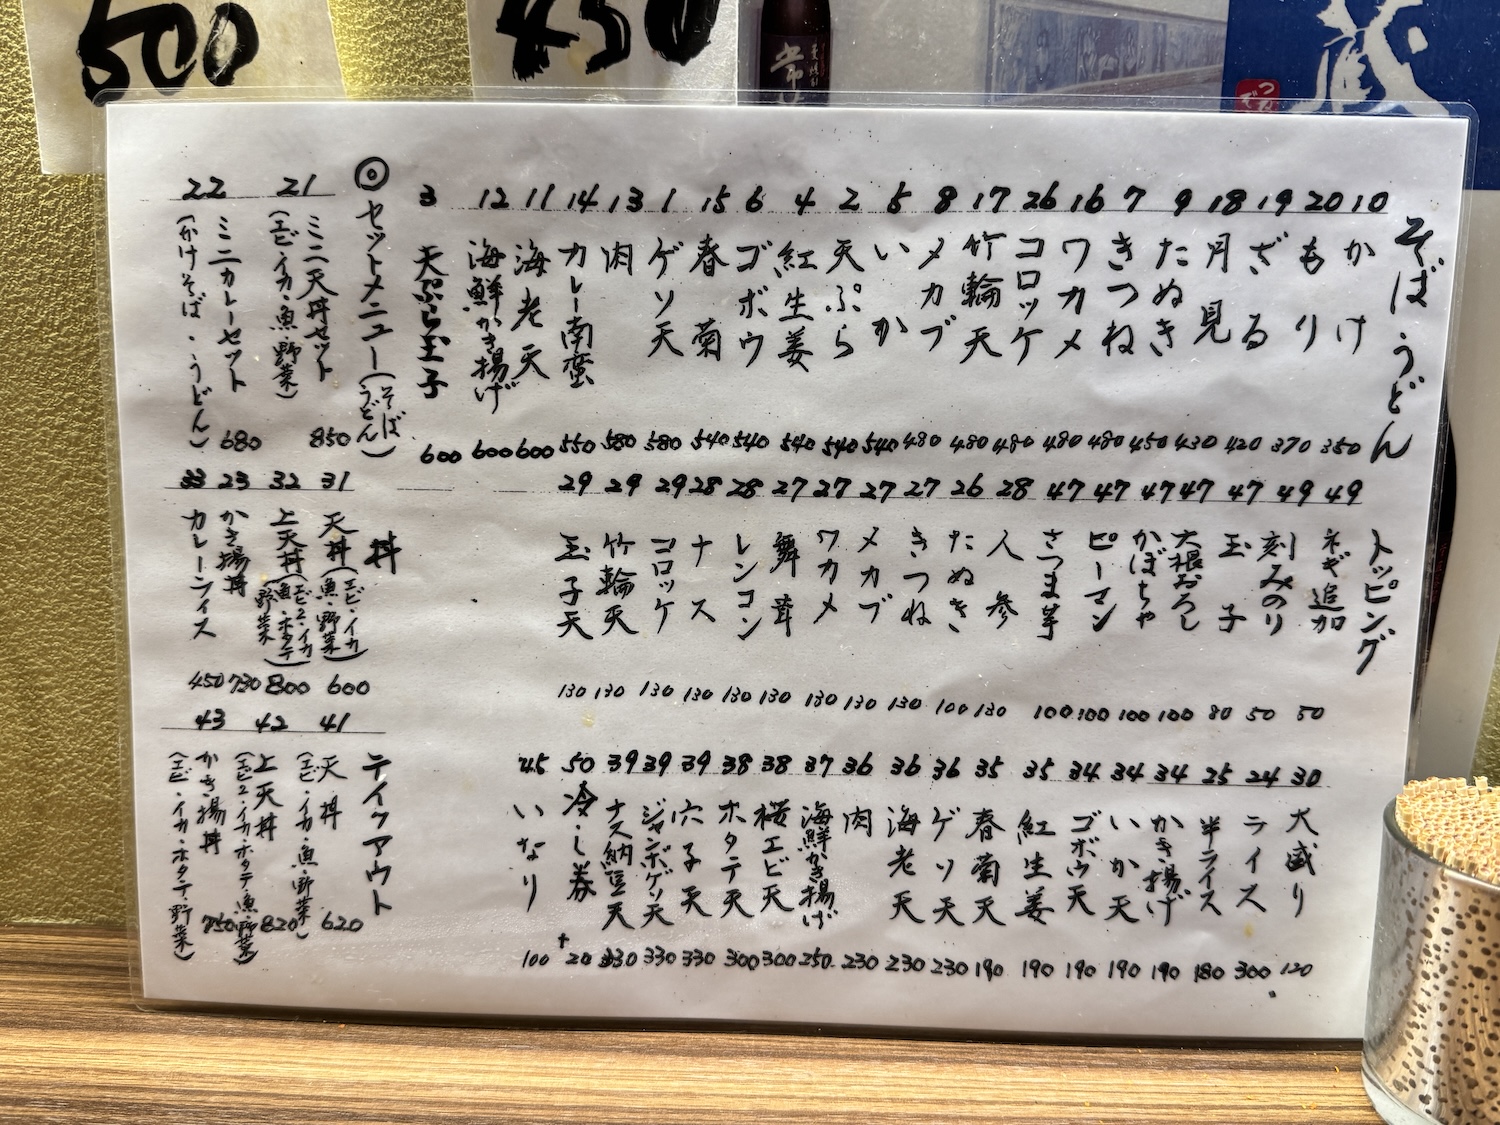 500
450
そばうどん
10 かけ 350
20 もり 370
19 ざる 420
18 月見 430
9 たぬき 450
7 きつね 480
16 ワカメ 480
26 コロッケ 480
17 竹輪天 480
8 メカブ 480
5 いか 540
2 天ぷら 540
4 紅生姜 540
6 ゴボウ 540
15 春菊 540
1 ゲソ天 580
13 肉 580
14 カレー南蛮 550
11 海老天 600
12 海鮮かき揚げ 600
3 天ぷら玉子 600
◎セットメニュー(そばうどん)
21 ミニ天丼セット 850
(エビ・イカ・魚・野菜)
22 ミニカレーセット 680
(かけそば・うどん)
トッピング
49 ネギ追加 50
49 刻みのり 50
47 玉子 80
47 大根おろし 100
47 かぼちゃ 100
47 ピーマン 100
47 さつま芋 100
28 人参 130
26 たぬき 100
27 きつね 130
27 メカブ 130
27 ワカメ 130
27 舞茸 130
28 レンコン 130
28 ナス 130
29 コロッケ 130
29 竹輪天 130
29 玉子天 130
丼
31 天丼(エビ・イカ・魚・野菜) 600
32 上天丼(エビ2・イカ・魚・ホタテ・野菜) 800
23 かき揚丼 730
33 カレーライス 450
30 大盛り 120
24 ライス 300
25 半ライス 180
34 かき揚げ 190
34 いか天 190
34 ゴボウ天 190
35 紅生姜 190
35 春菊天 190
36 ゲソ天 230
36 海老天 230
36 肉 230
37 海鮮かき揚げ 250
38 桜エビ天 300
38 ホタテ天 300
39 穴子天 330
39 ジャンボゲソ天 330
39 ナス納豆天 330
50 冷し券 +20
45 いなり 100
テイクアウト
41 天丼 620
(エビ・イカ・魚・野菜)
42 上天丼 820
(エビ2・イカ・ホタテ・魚・野菜)
43 かき揚丼 750
(エビ・イカ・ホタテ・野菜)